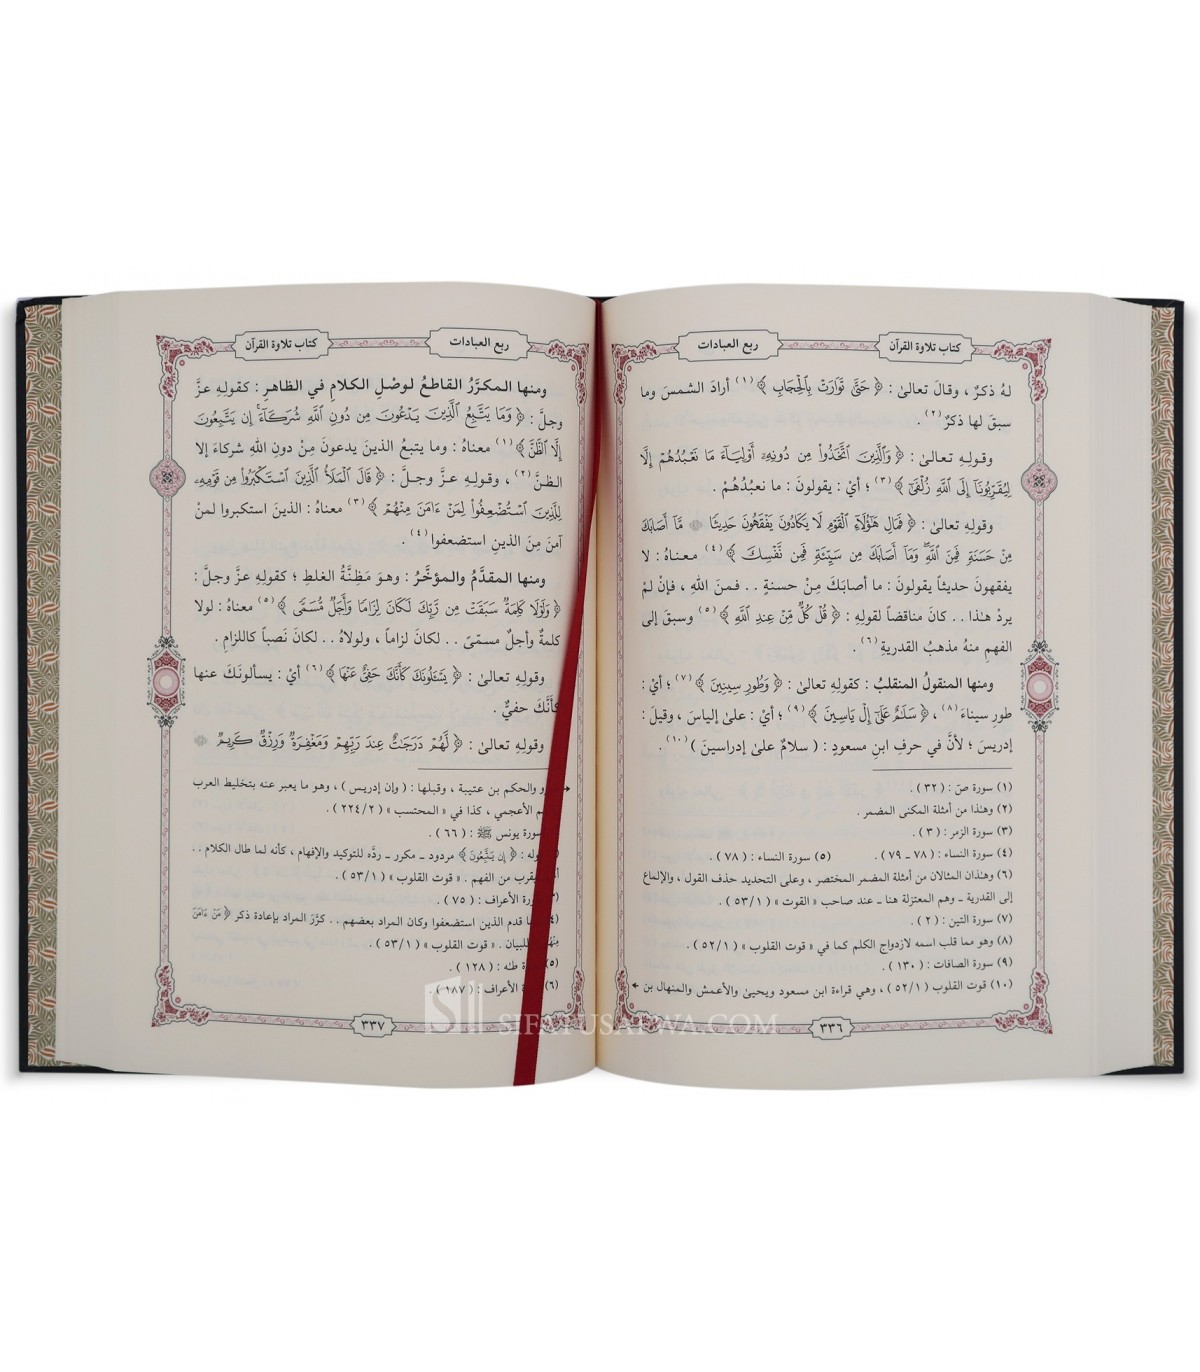 كتاب تلاوة القرآن
ربع العبادات
لهُ ذكرٌ ، وقالَ تعالىٰ : ﴿ حَتَّىٰ تَوَارَتْ بِالْحِجَابِ ﴾ (١) أرادَ الشمسَ وما
سبقَ لها ذكرٌ (٢) .
وقولِهِ تعالىٰ : ﴿ وَٱلَّذِينَ ٱتَّخَذُوا۟ مِن دُونِهِۦٓ أَوْلِيَآءَ مَا نَعْبُدُهُمْ إِلَّا
لِيُقَرِّبُونَآ إِلَى ٱللَّهِ زُلْفَىٰٓ ﴾ (٣) ؛ أيْ : يقولونَ : ما نعبُدُهُمْ .
وقولِهِ تعالىٰ : ﴿ فَمَالِ هَـٰٓؤُلَآءِ ٱلْقَوْمِ لَا يَكَادُونَ يَفْقَهُونَ حَدِيثًا ۝ مَّآ أَصَابَكَ
مِنْ حَسَنَةٍ فَمِنَ ٱللَّهِ ۖ وَمَآ أَصَابَكَ مِن سَيِّئَةٍ فَمِن نَّفْسِكَ ﴾ (٤) معناهُ : لا
يفقهونَ حديثاً يقولونَ : ما أصابَكَ مِنْ حسنةٍ . . فمنَ اللهِ ، فإنْ لمْ
يردْ هـٰذا . . كانَ مناقضاً لقولِهِ : ﴿ قُلْ كُلٌّ مِّنْ عِندِ ٱللَّهِ ﴾ (٥) وسبقَ إلى
الفهمِ منهُ مذهبُ القدريةِ (٦) .
ومنها المنقولُ المنقلبُ : كقولِهِ تعالىٰ : ﴿ وَطُورِ سِينِينَ ﴾ (٧) ؛ أيْ :
طورِ سيناءَ (٨) ، ﴿ سَلَـٰمٌ عَلَىٰٓ إِلْ يَاسِينَ ﴾ (٩) ؛ أيْ : علىٰ إلياسَ ، وقيلَ :
إدريسَ ؛ لأنَّ في حرفِ ابنِ مسعودٍ : ( سلامٌ علىٰ إدراسينَ ) (١٠) .
(١) سورة صٓ : ( ٣٢ ) .
(٢) وهـٰذا من أمثلة المكنى المضمر .
(٣) سورة الزمر : ( ٣ ) .
(٤) سورة النساء : ( ٧٨ ـ ٧٩ ) . (٥) سورة النساء : ( ٧٨ ) .
(٦) وهـٰذان المثالان من أمثلة المضمر المختصر ، وعلى التحديد حذف القول ، والإلماع
إلى القدرية ـ وهم المعتزلة هنا ـ عند صاحب « القوت » ( ٥٣/١ ) .
(٧) سورة التين : ( ٢ ) .
(٨) وهو مما قلب اسمه لازدواج الكلم كما في « قوت القلوب » ( ٥٢/١ ) .
(٩) سورة الصافات : ( ١٣٠ ) .
(١٠) قوت القلوب ( ٥٢/١ ) ، وهي قراءة ابن مسعود ويحيىٰ والأعمش والمنهال بن
٣٣٦
ربع العبادات
كتاب تلاوة القرآن
ومنها المكرَّرُ القاطعُ لوصْلِ الكلامِ في الظاهرِ : كقولِهِ عزَّ
وجلَّ : ﴿ وَمَا يَتَّبِعُ ٱلَّذِينَ يَدْعُونَ مِن دُونِ ٱللَّهِ شُرَكَآءَ ۚ إِن يَتَّبِعُونَ
إِلَّا ٱلظَّنَّ ﴾ (١) معناهُ : وما يتبعُ الذينَ يدعونَ مِنْ دونِ اللهِ شركاءَ إلا
الظنَّ (٢) ، وقولِهِ عزَّ وجلَّ : ﴿ قَالَ ٱلْمَلَأُ ٱلَّذِينَ ٱسْتَكْبَرُوا۟ مِن قَوْمِهِۦ
لِلَّذِينَ ٱسْتُضْعِفُوا۟ لِمَنْ ءَامَنَ مِنْهُمْ ﴾ (٣) معناهُ : الذينَ استكبروا لمنْ
آمنَ مِنَ الذينِ استضعفوا (٤) .
ومنها المقدَّمُ والمؤخَّرُ : وهوَ مَظِنَّةُ الغلطِ ؛ كقولِهِ عزَّ وجلَّ :
﴿ وَلَوْلَا كَلِمَةٌ سَبَقَتْ مِن رَّبِّكَ لَكَانَ لِزَامًا وَأَجَلٌ مُّسَمًّى ﴾ (٥) معناهُ : لولا
كلمةٌ وأجلٌ مسمّىً . . لكانَ لزاماً ، ولولاهُ . . لكانَ نَصباً كاللزامِ .
وقولِهِ تعالىٰ : ﴿ يَسْـَٔلُونَكَ كَأَنَّكَ حَفِىٌّ عَنْهَا ﴾ (٦) أيْ : يسألونَكَ عنها
كأنَّكَ حفيٌّ .
وقولِهِ تعالىٰ : ﴿ لَّهُمْ دَرَجَـٰتٌ عِندَ رَبِّهِمْ وَمَغْفِرَةٌ وَرِزْقٌ كَرِيمٌ ۝
و والحكم بن عتيبة ، وقبلها : ( وإن إدريس ) ، وهو ما يعبر عنه بتخليط العرب
الأعجمي ، كذا في « المحتسب » ( ٢٢٤/٢ ) .
سورة يونس ﷺ : ( ٦٦ ) .
﴿ إِن يَتَّبِعُونَ ﴾ مردود ـ مكرر ـ ردَّه للتوكيد والإفهام ، كأنه لما طال الكلام . .
يقرب من الفهم . « قوت القلوب » ( ٥٣/١ ) .
الأعراف : ( ٧٥ ) .
قدم الذين استضعفوا وكان المراد بعضهم . . كرَّر المراد بإعادة ذكر ﴿ مَنْ ءَامَنَ
للبيان . « قوت القلوب » ( ٥٣/١ ) .
(٥) طه : ( ١٢٨ ) .
(٦) الأعراف : ( ١٨٧ ) .
٣٣٧
SIFATUSAFWA.COM